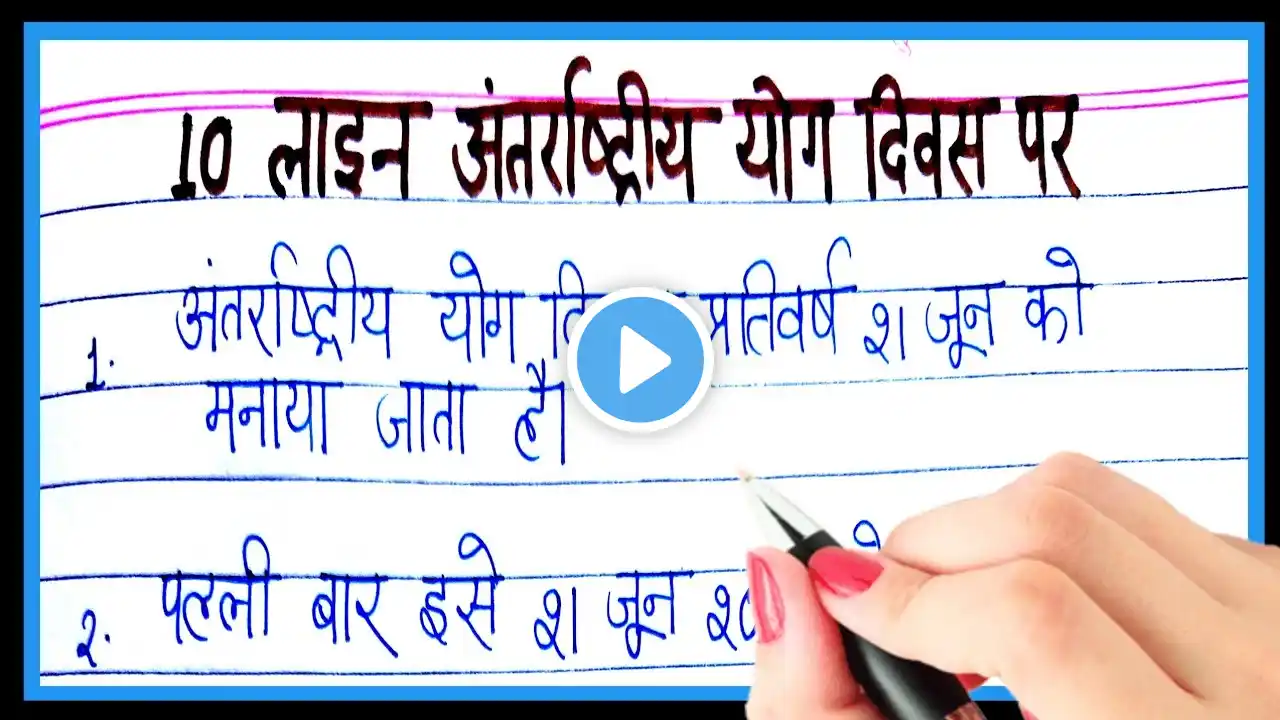 10 लाइन अंतर्राष्ट्रीय योग दिवस पर
1. अंतर्राष्ट्रीय योग प्रतिवर्ष २१ जून को
मनाया जाता है।
२. पहली बार इसे २१ जून